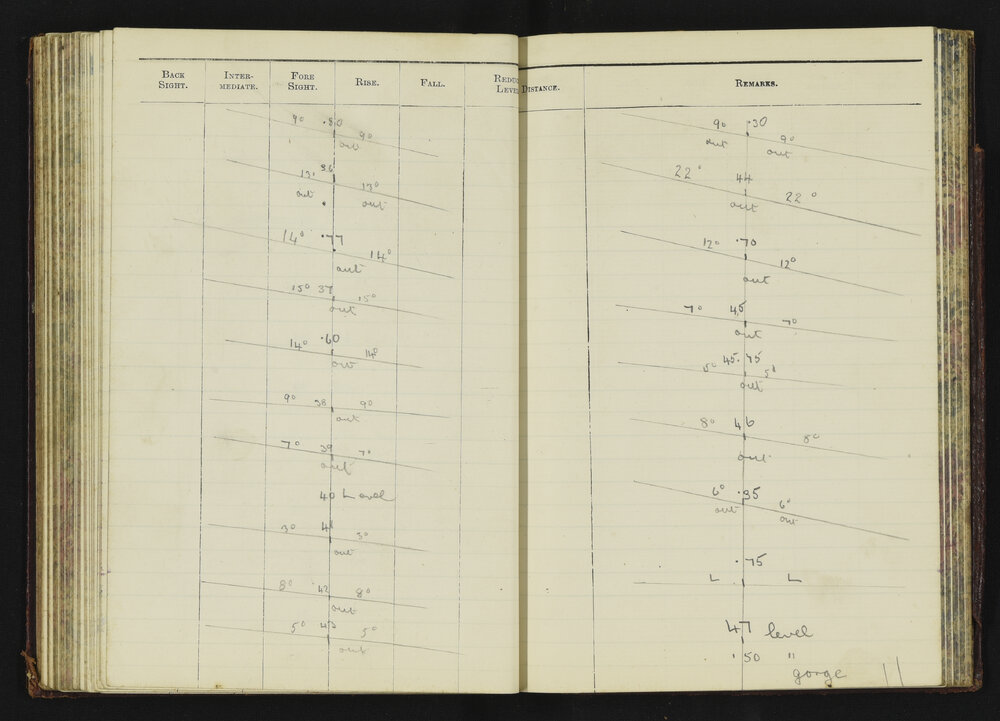 BACK SIGHT. INTER-MEDIATE. FORE SIGHT. RISE. FALL. REDU LEVE
9° .80 9°
out
13° 36 13°
out out
14° .77 14°
out
15° 37 15°
out
14° .60 14°
out
9° 38 9°
out
7° 39 7°
out
40 Level
3° 41 3°
out
8° 42 8°
out
5° 43 5°
out
DISTANCE. REMARKS.
9° .30 9°
out out
22° 44 22°
out
12° .70 12°
out
7° 45 7°
out
5° 45.75 5°
out
8° 46 8°
out
6° .35 6°
out out
.75
L L
47 level
.50 "
gorge